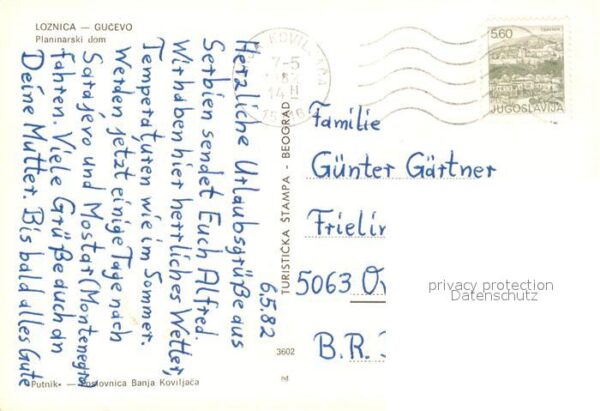 LOZNICA — GUČEVO
Planinarski dom
6.5.82
Herzliche Urlaubsgrüße aus
Serbien sendet Euch Alfred.
Wir haben hier herrliches Wetter,
Temperaturen wie im Sommer.
Werden jetzt einige Tage nach
Sarajevo und Mostar (Montenegro)
fahren. Viele Grüße auch an
Deine Mutter. Bis bald alles Gute
»Putnik« — Poslovnica Banja Koviljača
TURISTIČKA ŠTAMPA - BEOGRAD
3602
KOVILJAČA
7-5
14
5.60
JUGOSLAVIJA
Familie
Günter Gärtner
Frielin
5063 Ov
B.R.
privacy protection
Datenschutz